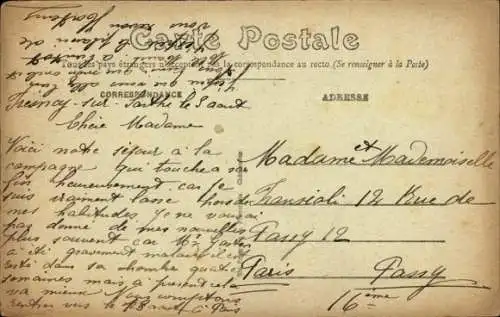 Carte Postale
Tous les pays étrangers n'acceptent pas la correspondance au recto (Se renseigner à la Poste)
CORRESPONDANCE
ADRESSE
Fresnay-sur-Sarthe le 3 aout
Chère Madame
Voici notre séjour à la
campagne qui touche a sa
fin heureusement car je
suis vraiment lasse hors de
mes habitudes. Je ne vous ai
pas donné de mes nouvelles
plus souvent car Mr Gaston
a été gravement malade il est
resté dans sa chambre quatre
semaines mais à présent cela
va mieux Nous comptons
rentrer vers le 8 aout à Paris
Madame et Mademoiselle
Fransioli 12 Rue de
Passy 12
Paris Passy
16ème